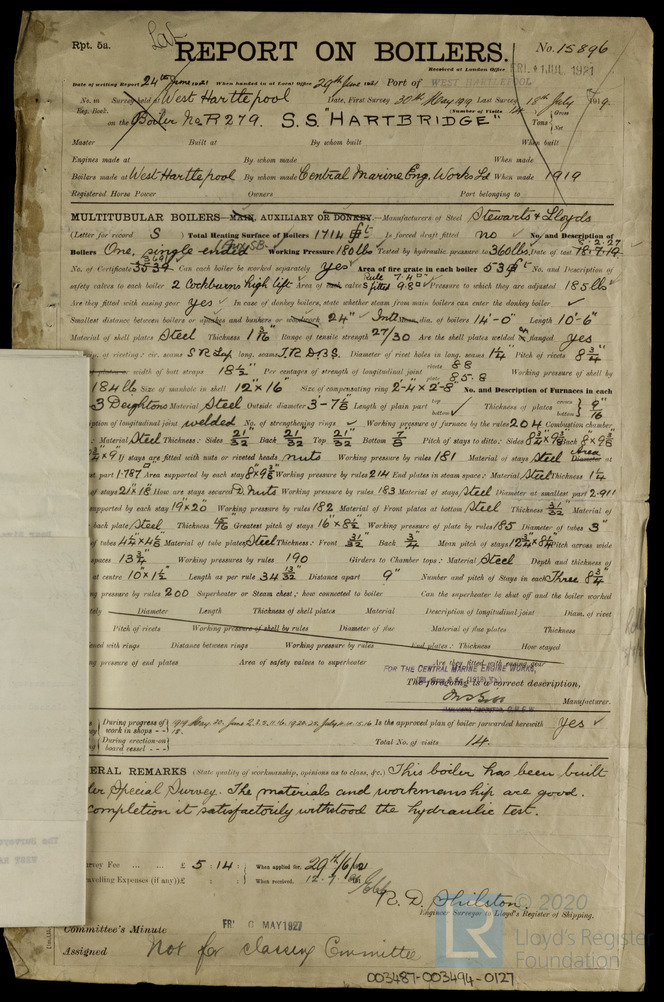 Rpt. 5a.
REPORT ON BOILERS.
No. 15896
Received at London Office FRI. 1 JUL 1921
Date of writing Report 24th June 1921 When handed in at Local Office 29th June 1921 Port of WEST HARTLEPOOL
No. in Survey held at West Hartlepool Date, First Survey 30th May 1919 Last Survey 18th July 1919
Reg. Book. (Number of Visits 14
on the Boiler No. R 279. S.S "HARTBRIDGE" Tons Gross Net
Master Built at By whom built When built
Engines made at By whom made When made
Boilers made at West Hartlepool By whom made Central Marine Eng. Works Ld When made 1919
Registered Horse Power Owners Port belonging to
MULTITUBULAR BOILERS—MAIN, AUXILIARY OR DONKEY.—Manufacturers of Steel Stewarts & Lloyds
(Letter for record S) Total Heating Surface of Boilers 1714 Is forced draft fitted no No. and Description of
Boilers One, single ended Working Pressure 180 lbs Tested by hydraulic pressure to 360 lbs. Date of test 18.7.19
No. of Certificate 3539 Can each boiler be worked separately yes Area of fire grate in each boiler 53 No. and Description of
safety valves to each boiler 2 Cockburns high lift Area of each valve Pressure to which they are adjusted 185 lbs
Are they fitted with easing gear yes In case of donkey boilers, state whether steam from main boilers can enter the donkey boiler
Smallest distance between boilers or uptakes and bunkers or woodwork 24" dia. of boilers 14'-0" Length 10'-6"
Material of shell plates Steel Thickness Range of tensile strength 27/30 Are the shell plates welded or flanged yes
of riveting: cir. seams S R Lap long. seams T.R. D.B.S. Diameter of rivet holes in long. seams 1 1/4 Pitch of rivets 8 3/4"
width of butt straps 18 1/2" Per centages of strength of longitudinal joint rivets 88 plate 85.8 Working pressure of shell by
184 lb Size of manhole in shell 12" × 16" Size of compensating ring 2'-4" × 2'-8" No. and Description of Furnaces in each
3 Deightons Material Steel Outside diameter 3'-7 1/8" Length of plain part top bottom Thickness of plates crown bottom 9/16"
of longitudinal joint welded No. of strengthening rings Working pressure of furnace by the rules 204 Combustion chamber
: Material Steel Thickness: Sides 21/32" Back 21/32 Top 21/32" Bottom 7/8 Pitch of stays to ditto: Sides Back
If stays are fitted with nuts or riveted heads nuts Working pressure by rules 181 Material of stays Steel Area at
part 1.787 Area supported by each stay Working pressure by rules 214 End plates in steam space: Material Steel Thickness 1 1/4
of stays 21" × 18" How are stays secured D. nuts Working pressure by rules 183 Material of stays Steel Diameter at smallest part 2.911
supported by each stay 19" × 20" Working pressure by rules 182 Material of Front plates at bottom Steel Thickness 31/32" Material of
back plate Steel Thickness Greatest pitch of stays 16" × 8 1/2" Working pressure of plate by rules 185 Diameter of tubes 3"
of tubes 4 3/4" × 4 5/8" Material of tube plates Steel Thickness: Front 31/32" Back 3/4" Mean pitch of stays Pitch across wide
spaces 13 3/4" Working pressures by rules 190 Girders to Chamber tops: Material Steel Depth and thickness of
at centre 10" × 1 1/2" Length as per rule 34 13/32" Distance apart 9" Number and pitch of Stays in each Three 8 3/4"
pressure by rules 200 Superheater or Steam chest; how connected to boiler Can the superheater be shut off and the boiler worked
Diameter Length Thickness of shell plates Material Description of longitudinal joint Diam. of rivet
Pitch of rivets Working pressure of shell by rules Diameter of flue Material of flue plates Thickness
with rings Distance between rings Working pressure by rules End plates: Thickness How stayed
pressure of end plates Area of safety valves to superheater Are they fitted with easing gear
FOR THE CENTRAL MARINE ENGINE WORKS,
The foregoing is a correct description,
Manufacturer.
During progress of work in shops - - Is the approved plan of boiler forwarded herewith yes
During erection on board vessel - - - Total No. of visits 14.
GENERAL REMARKS (State quality of workmanship, opinions as to class, &c.) This boiler has been built
Special Survey. The materials and workmanship are good.
completion it satisfactorily withstood the hydraulic test.
Survey Fee ... ... £ 5 : 14 : When applied for, 29th/6/21
Travelling Expenses (if any) £ : : When received,
R. D. Shilston.
Engineer Surveyor to Lloyd's Register of Shipping.
© 2020
Lloyd's Register
Foundation
LR
Committee's Minute FRI 6 MAY 1927
Assigned Not for classing Committee
003487-003494-0127